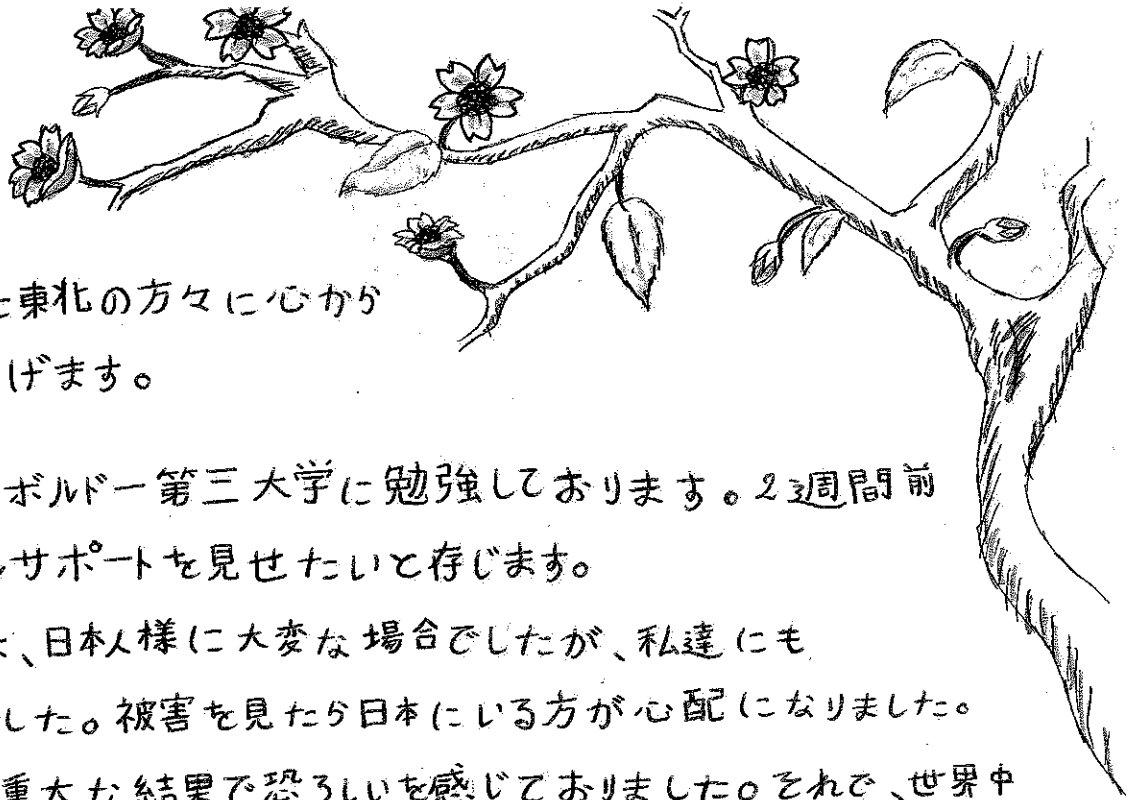 東北の方々に心から
げます。
ボルドー第三大学に勉強しております。2 3週間前
サポートを見せたいと存じます。
、日本人様に大変な場合でしたが、私達にも
した。被害を見たら日本にいる方が心配になりました。
重大な結果で恐ろしいを感じておりました。それで、世界中